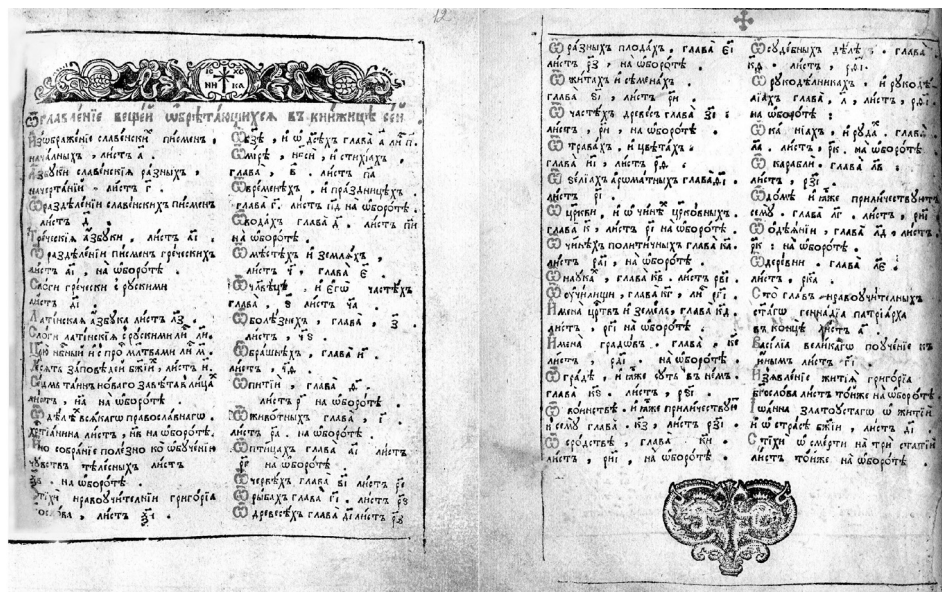 12
ІС ХС
НИ КА
Ѡглавленїе вещей ѡбрѣтающихся въ книжицѣ сей
Изѡбраженїе славенскиⷯ писменъ,
началныхъ, листъ а҃.
Азбуки славенскїя разныхъ,
начертанїи листъ г҃.
Ѡ раздѣленїи славенскихъ писменъ
листъ д҃.
Греческїя азбуки, листъ аі҃:
Ѡ раздѣленїи писмен греческихъ
листъ аі҃, на ѡборотѣ.
Слоги гречески с рускими
листъ ді҃.
Латїнская азбука листъ
Слоги латїнскїя с рускими
Десять заповѣдеи бжїиⷯ, листъ н҃.
Седмь таинъ новаго завѣта
листъ, на ѡборотѣ.
Ѡ дѣлѣⷯ всякагѡ православнагѡ
хрⷭтїанина листъ, на ѡборотѣ.
Ино собранїе полезно ко ѡбученїю
чувствъ тѣлесныхъ листъ
на ѡборотѣ.
Стїхи нравоучителнїи григорїа
бгослова, листъ
Ѡ бзѣ, и ѡ
Ѡ мирѣ, нбси, и стихїахъ,
глава, в҃. листъ па҃
Ѡ временѣхъ, и праздницѣхъ.
глава г҃. листъ пд҃ на ѡборотѣ.
Ѡ водахъ глава д҃. листъ пи҃
на ѡборотѣ.
Ѡ мѣстѣхъ и земляхъ,
листъ ч҃, глава є҃.
Ѡ члвѣцѣ и єгѡ частѣхъ
глава, ѕ҃ листъ ча҃
Ѡ болѣзнехъ, глава, з҃
листъ, чѕ҃.
Ѡ брашнѣхъ, глава и҃.
листъ,
Ѡ питїи, глава ѳ҃.
листъ р҃ на ѡборотѣ.
Ѡ животныхъ глава, і҃.
листъ ра҃. на ѡборотѣ.
Ѡ птицахъ глава аі҃ листъ
на ѡборотѣ.
Ѡ червѣхъ глава ві҃ листъ
Ѡ рыбахъ глава гі҃. листъ
Ѡ древесѣхъ глава ді҃ листъ
Ѡ разныхъ плодахъ, глава єі҃
листъ рз҃, на ѡборотѣ.
Ѡ житахъ и сѣменахъ
глава ѕі҃, листъ ри҃.
Ѡ частѣхъ древесъ глава зі҃:
листъ, ри҃, на ѡборотѣ.
Ѡ травахъ, и цвѣтахъ:
глава иі҃, листъ рѳ҃.
Ѡ зелїахъ аромматныхъ глава ѳі҃.
листъ рі҃.
Ѡ церкви, и ѡ чинѣ церковныхъ.
глава к҃, листъ рі҃ на ѡборотѣ.
Ѡ чинѣхъ политичныхъ глава ка҃.
листъ раі҃, на ѡборотѣ.
Ѡ наукаⷯ, глава кв҃. листъ рві҃.
Ѡ училищи, глава кг҃, лиⷭ ргі҃.
Имена цртвъ и земель, глава кд҃.
листъ. ргі҃ на ѡборотѣ.
Имена градовъ. глава, кє҃
листъ, рді҃. на ѡборотѣ.
Ѡ градѣ, и яже суть въ немъ.
глава кѕ҃. листъ, рѕі҃.
Ѡ воинствѣ. и яже приличествуют
к сему глава. кз҃, листъ рзі҃.
Ѡ сродствѣ, глава ки҃.
листъ, риі҃, на ѡборотѣ.
Ѡ судебныхъ дѣлѣ глава
кѳ҃. листъ, рѳі҃.
Ѡ рукодѣлникахъ, и рукодѣ-
лїахъ глава, л҃, листъ, рѳі҃.
на ѡборотѣ:
Ѡ и рудаⷯ. глава.
ла҃. листъ, рк҃. на ѡборотѣ.
Ѡ корабли. глава лв҃:
листъ, рзі҃
Ѡ домѣ и яже приличествуютъ
сему. глава лг҃. листъ, риі҃
Ѡ одѣянїи, глава лд҃, листъ.
рк҃: на ѡборотѣ.
Ѡ деревни. глава лє҃.
листъ, рка҃.
Сто главъ нравоучителныхъ
стагѡ геннадїа патрїарха
въ концѣ листъ а҃.
Василїа великагѡ поученїе к
юнымъ листъ гі҃.
Изявленїе житїя григорїа
бгослова листъ тойже на ѡборотѣ.
Іѡанна златоустагѡ ѡ житїи
и ѡ страсѣ бжїи, листъ ді҃
Стїхи ѡ смерти на три статїи
листъ тойже на ѡборотѣ.